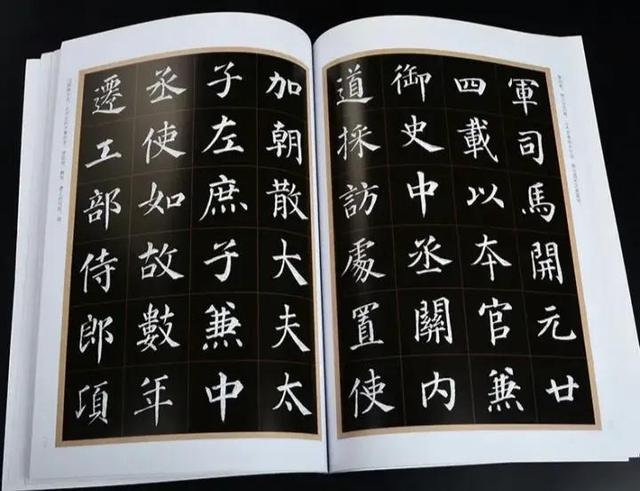 軍司馬開元廿
四載以本官兼
御史中丞關內
道採訪處置使
加朝散大夫太
子左庶子兼中
丞使如故數年
遷工部侍郎項